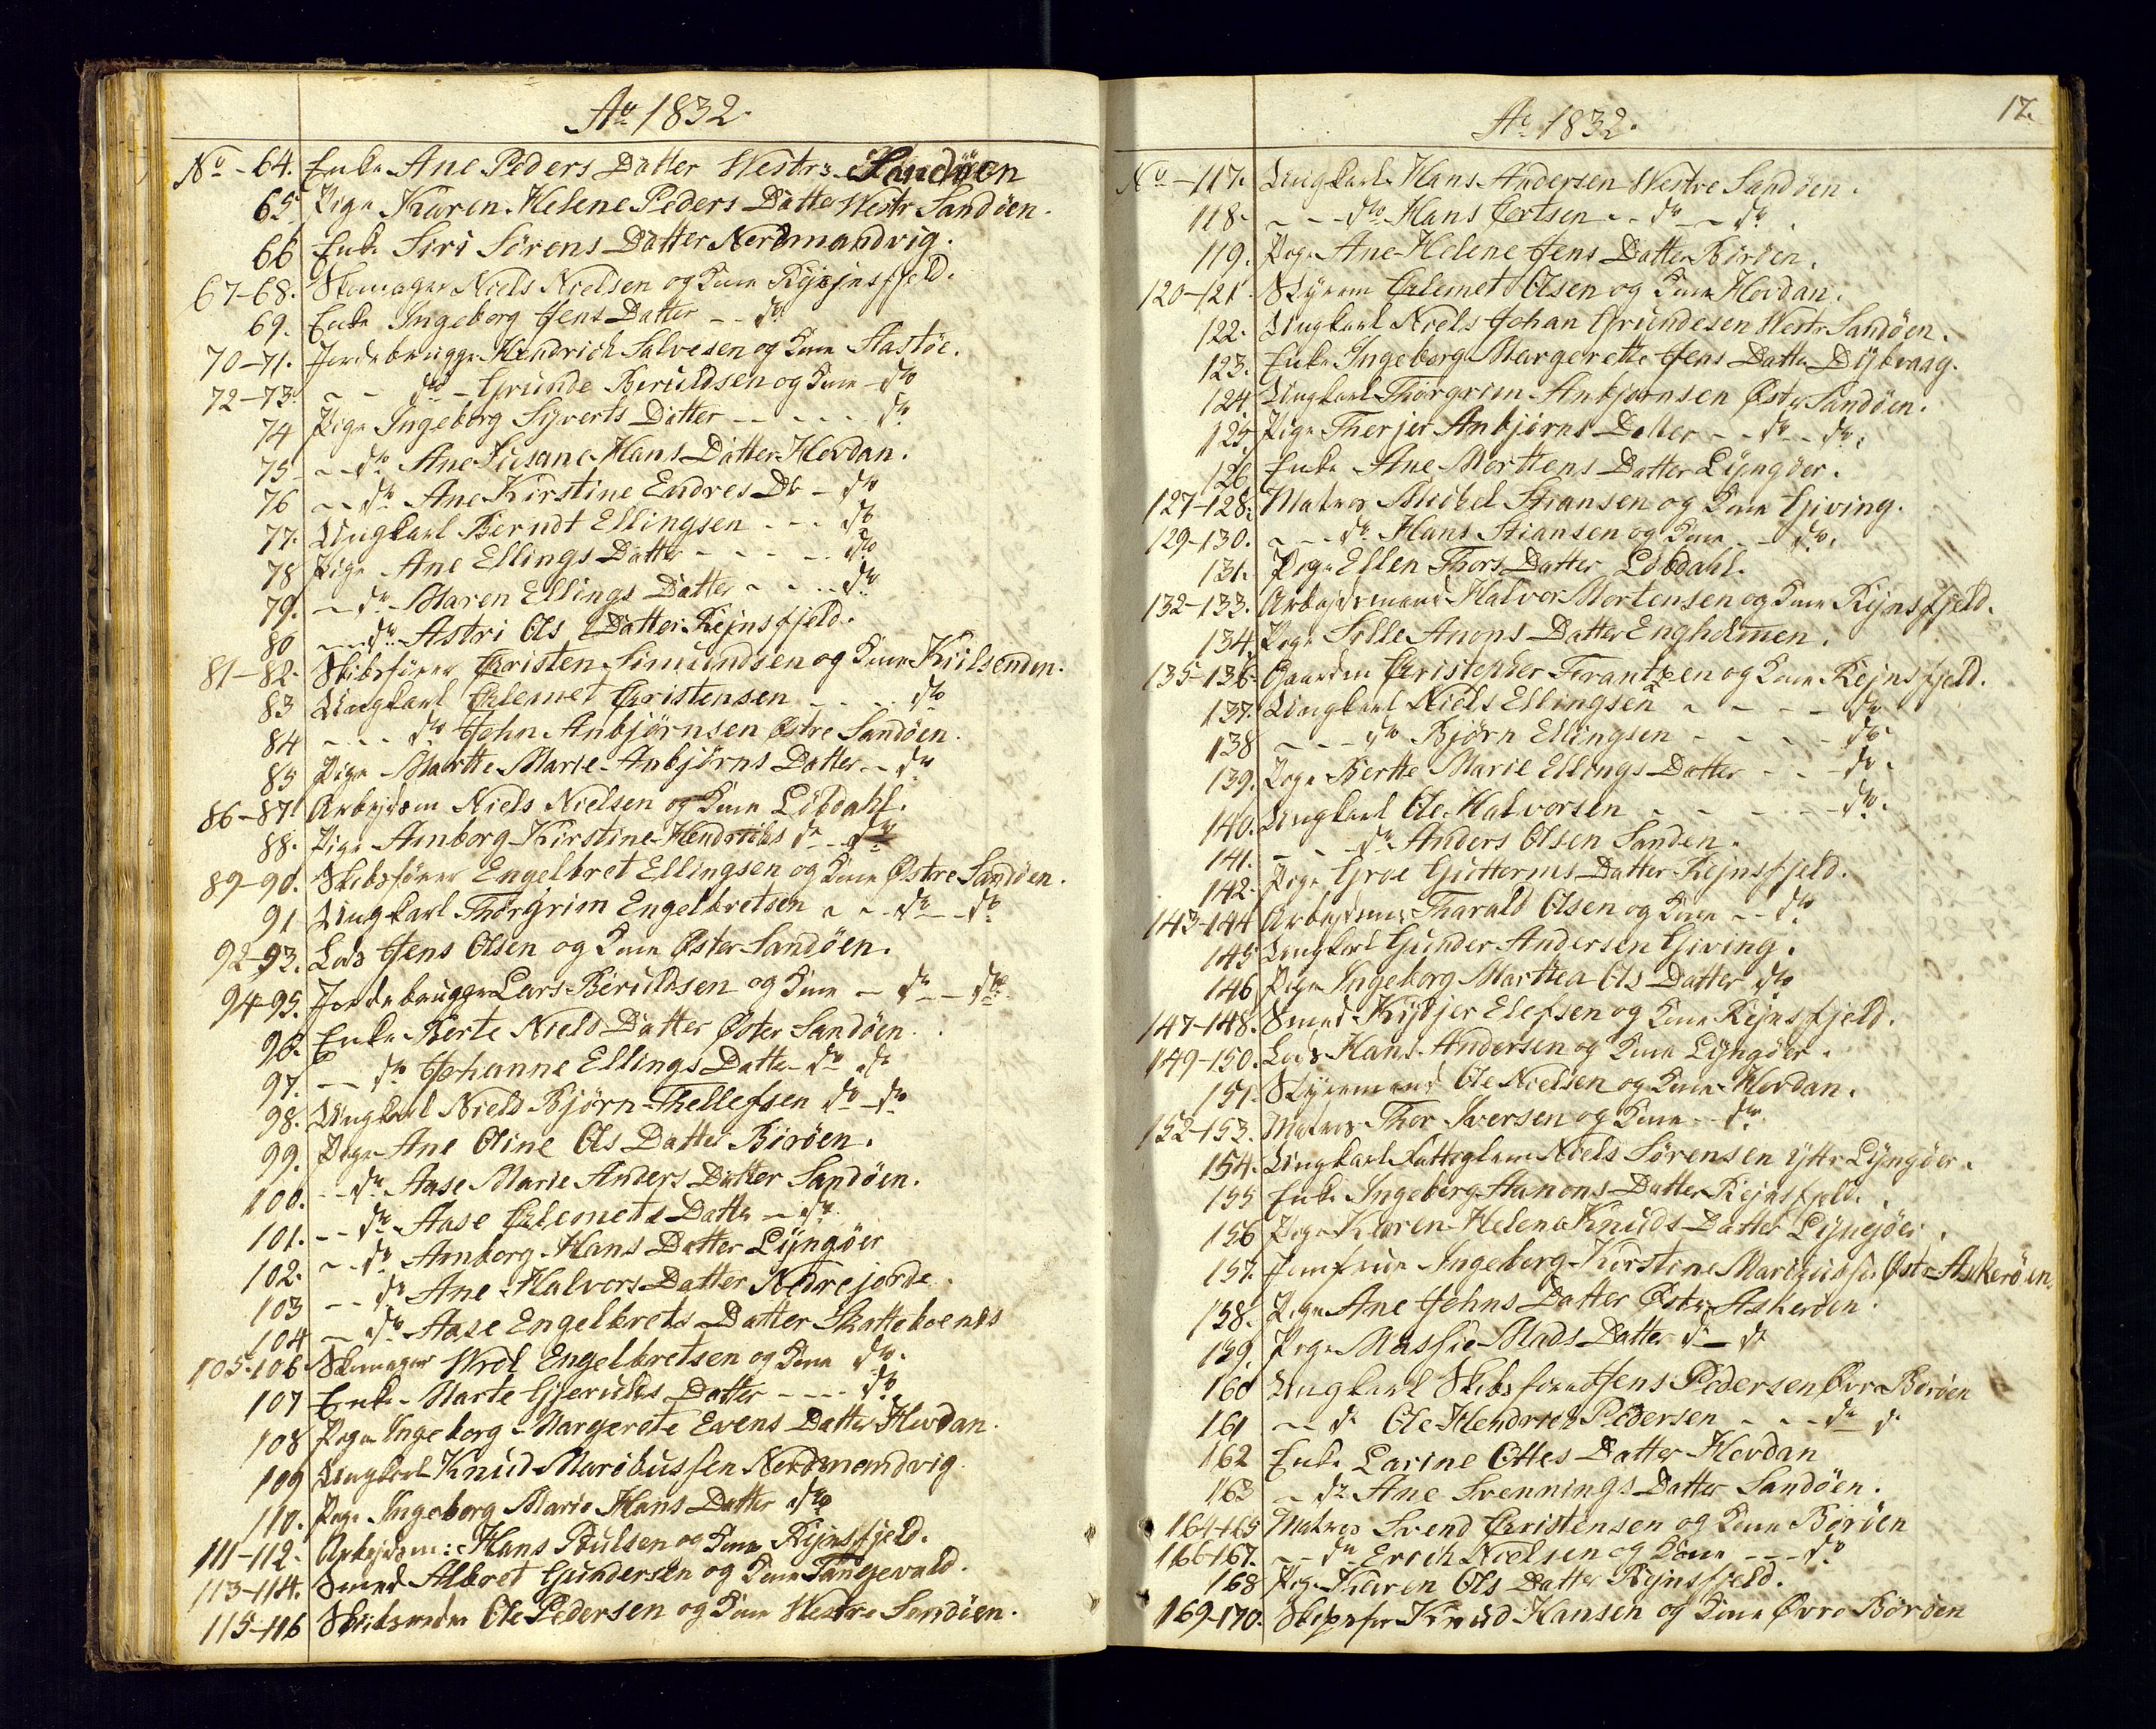 Aº 1832.
Nº - 64. Enke Ane Peders Datter Westre Sandöen
65 Pige Karen Helene Peders Datter Westr Sandöen.
66 Enke Siri Sörens Datter Nerdmandvig.
67-68. Skomager Niels Nielsen og Kone Rejnsfjeld.
69. Enke Ingeborg Jens Datter - - do
70-71. Jordebrugger Hendrich Salvesen og Kone Aastöe.
72-73. - - do - Grunde Beruldsen og Kone - do
74 Pige Ingeborg Syverts Datter - - - - do
75 - - do Ane Susane Hans Datter Hovdan.
76 - - do Ane Kirstine Endres Dr - do
77. Ungkarl Berndt Ellingsen - - - do
78 Pige Ane Ellings Datter - - - - do
79. - do Maren Ellings Datter - - - do
80 - - do Astri Ols Datter Rejnsfjeld.
81-82. Skibsförer Christen Simundsen og Kone Kiilsenden.
83 Ungkarl Clemet Christensen - - - - do
84 - - - do John Anbjörnsen Östre Sandöen.
85 Pige Marthe Marie Anbjörns Datter - - do
86-87. Arbejdsm Niels Nielsen og Kone Löbdahl.
88. Pige Amborg Kirstine Hendrichs dr - do
89-90. Skibsförer Engelbret Ellingsen og Kone Östre Sandöen.
91 Ungkarl Thorgrim Engelbretsen - - do - do
92-93. Lods Jens Olsen og Kone Öster Sandöen.
94-95. Jordebrugger Lars Beruldsen og Kone - do - do
96. Enke Berte Niels Datter Öster Sandöen.
97. - - do Johanne Ellings Datter do do
98. Ungkarl Nield Björn Thellefsen do - do
99. Pige Ane Oline Ols Datter Boröen.
100. - - do Aase Marie Anders Datter Sandöen.
101. - - do Aase Clemets Datter - do
102. - - do Amborg Hans Datter Lyngöer
103 - - do Ane Halvors Datter Nedrejorde.
104 - do Aase Engelbrets Datter Skatteboends
105-106 Skomager Wrol Engelbretsen og Kone do.
107 Enke Marte Gjerulds Datter - - - - do.
108 Pige Ingeborg Margerete Evens Datter Hovdan.
109 Ungkarl Knud Marcussen Nerdmandvig
110. Pige Ingeborg Marie Hans Datter do
111-112. Arbejdsm: Hans Poulsen og Kone Rejnsfjeld.
113-114. Smed Albret Gundersen og Kone Tangevald.
115-116 Ole Pedersen og Kone Westre Sandöen.
Aº 1832.
17.
Nº - 117. Ungkarl Hans Andersen Westre Sandöen.
118. - - - do Hans Gertsen - - do - do.
119. Pige Ane Helene Jens Datter Boröen.
120-121. Styrem Clemet Olsen og Kone Hovdan.
122. Ungkarl Niels Johan Grundesen Westr Sandöen.
123. Enke Ingeborg Margerethe Jens Datter Dybvaag.
124. Ungkarl Thorgrim Anbjörnsen Öster Sandöen.
125 Pige Therjer Anbjörns Datter - - do - do.
126. Enke Ane Morttens Datter Lyngöer.
127-128. Matros Michel Stiansen og Kone Giving.
129-130. - - - do Hans Stiansen og Kone - - do.
131. Pige Ellen Thors Datter Löbdahl.
132-133. Arbejdsmand Halvor Mortensen og Kone Rejnsfjeld.
134. Pige Sille Anons Datter Engholmen.
135-136. Gaardm Christopher Frantzen og Kone Rejnsfjeld.
137. Ungkarl Niels Ellingsen - - - - do
138 - - - do Björn Ellingsen - - - - do.
139. Pige Berthe Marie Ellings Datter - - - do.
140. Ungkarl Ole Halvorsen - - - - - do.
141. - - - do Anders Olsen Sanden.
142. Pige Groe Gutterms Datter Rejnsfjeld.
143-144 Arbejdsm Tharald Olsen og Kone - - do
145 Ungkarl Gunder Andersen Giving.
146 Pige Ingeborg Marthea Ols Datter do
147-148. Smed Elefsen og Kone Rejnsfjeld.
149-150. Lods Hans Andersen og Kone Lyngöer.
151. Styremand Ole Nielsen og Kone Hovdan.
152-153. Matros Thor Iversen og Kone - do
154. Ungkarl Fattiglem Niels Sörensen ytre Lyngöer.
155 Enke Ingeborg Aanons Datter Rejnsfjeld.
156 Pige Karen Helene Knuds Datter Lyngöer.
157. Jomfrue Ingeborg Kirstine Östr Askeröen.
158. Pige Ane Johns Datter Östre Askeröen.
159. Pige Massie Mads Datter do - do
160 Ungkarl Skibsförer Jens Pedersen Övre Boröen
161 - - do Ole Hendrich Pedersen - - - do do
162 Enke Larine Ottes Datter Hovdan
163 - do Ane Svennings Datter Sandöen.
164-165 Matros Svend Christensen og Kone Boröen
166-167. - - do Erich Nielsen og Kone - - - do
168 Pige Karen Ols Datter Rejnsfjeld.
169-170. Knud Hansen og Kone Övre Boröen